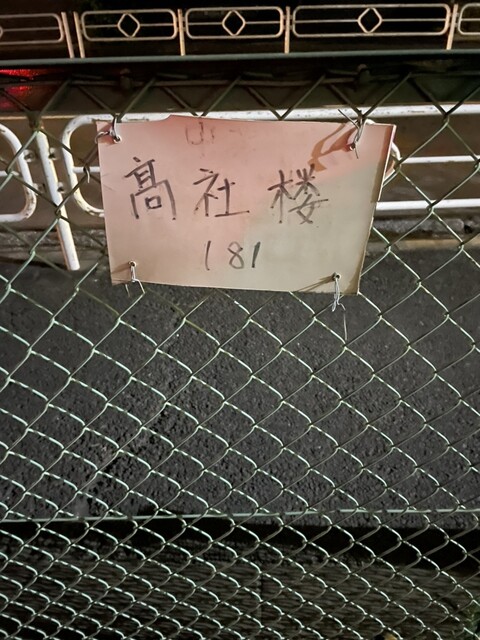 髙社楼
181